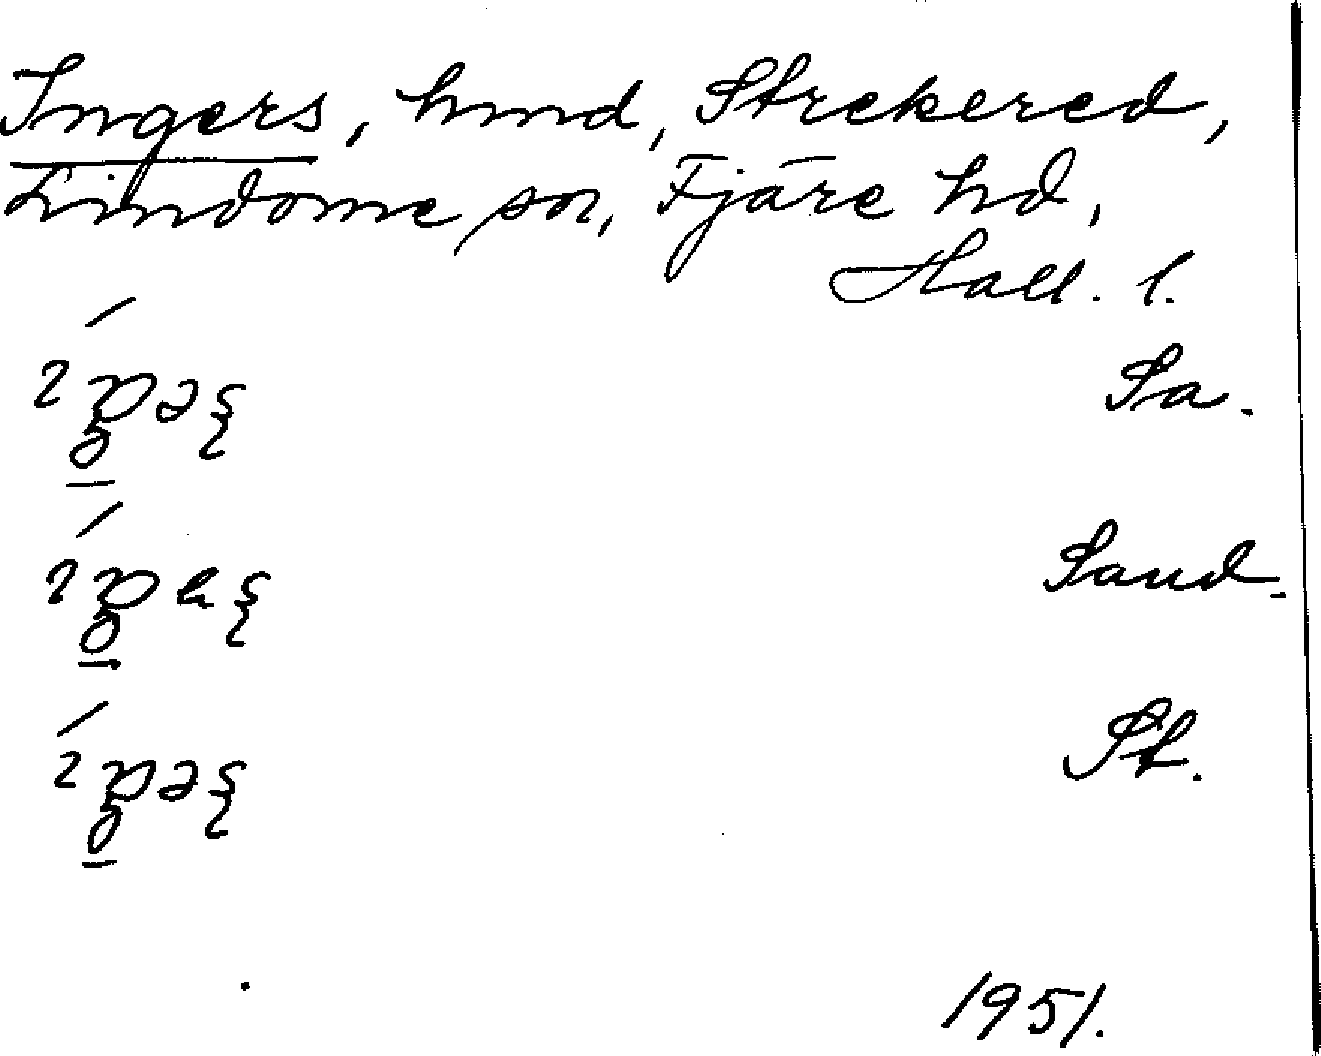 Ingers, hmd, Strekered,
Lindome sn, Fjäre hd,
Hall. l.
Sa.
Sand.
St.
1951.